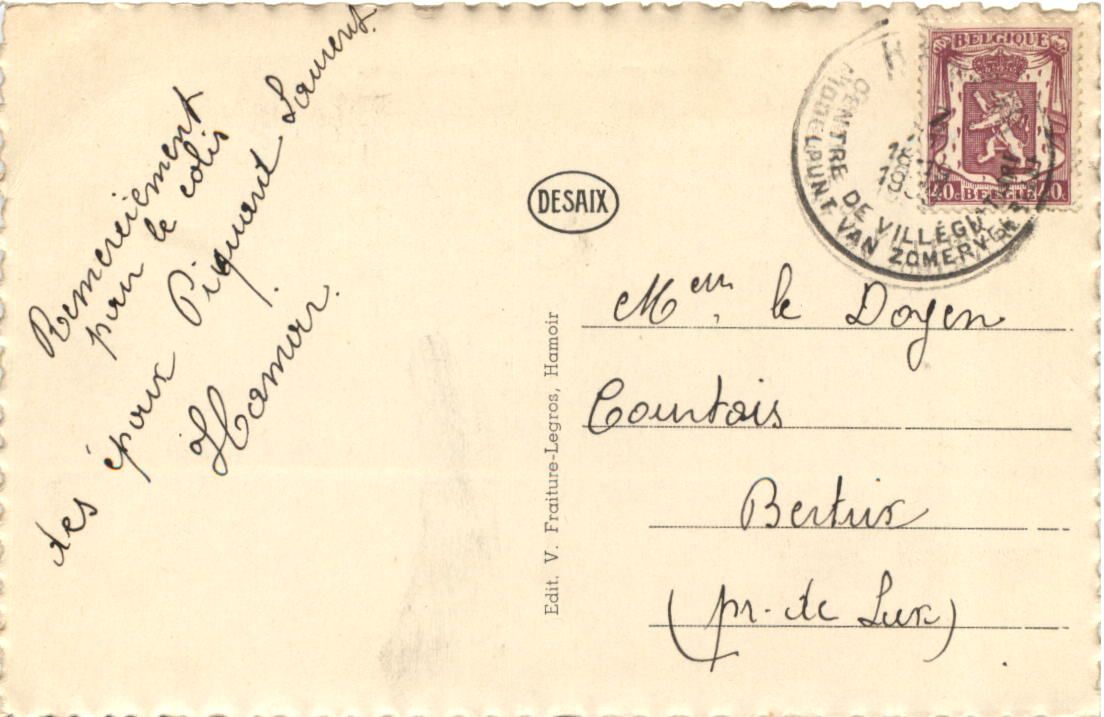 Remerciement
pour le colis
des époux Piquard Laurent.
Hamoir.
DESAIX
Edit. V. Fraiture-Legros, Hamoir
BELGIQUE
40c BELGIË 40c
CENTRE DE VILLÉGIATURE
PUNT VAN ZOMERVERBLIJF
Mem le Doyen
Courtois
Bertrix
(pr. de Lux)